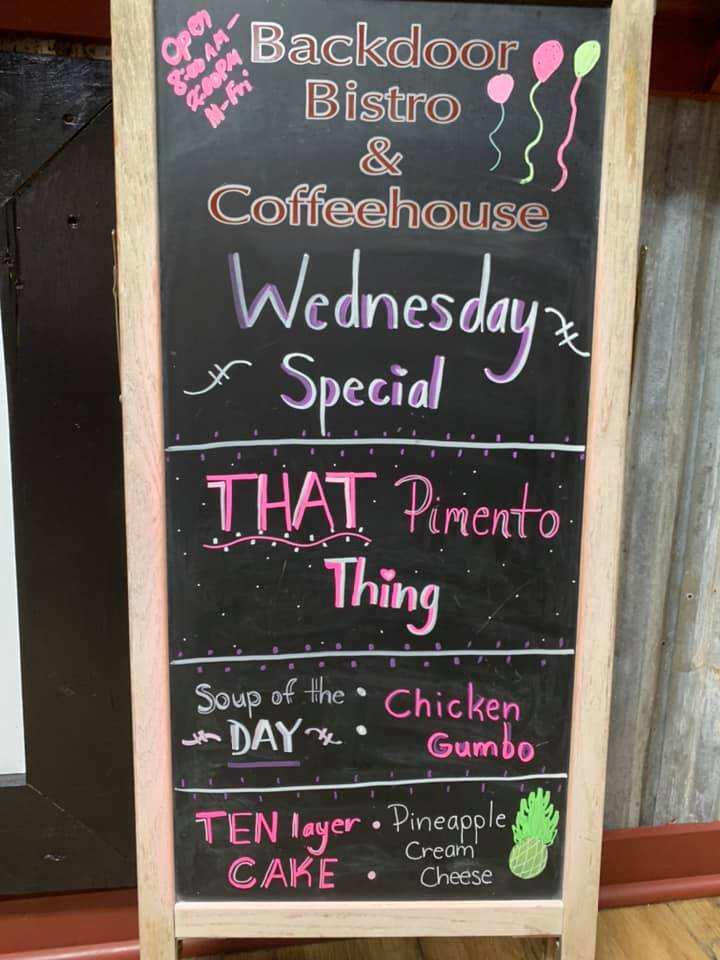 Open
8:00 AM -
2:00 PM
M-Fri
Backdoor
Bistro
&
Coffeehouse
Wednesday
Special
THAT Pimento
Thing
Soup of the :
DAY
Chicken
Gumbo
TEN layer •
CAKE •
Pineapple
Cream
Cheese